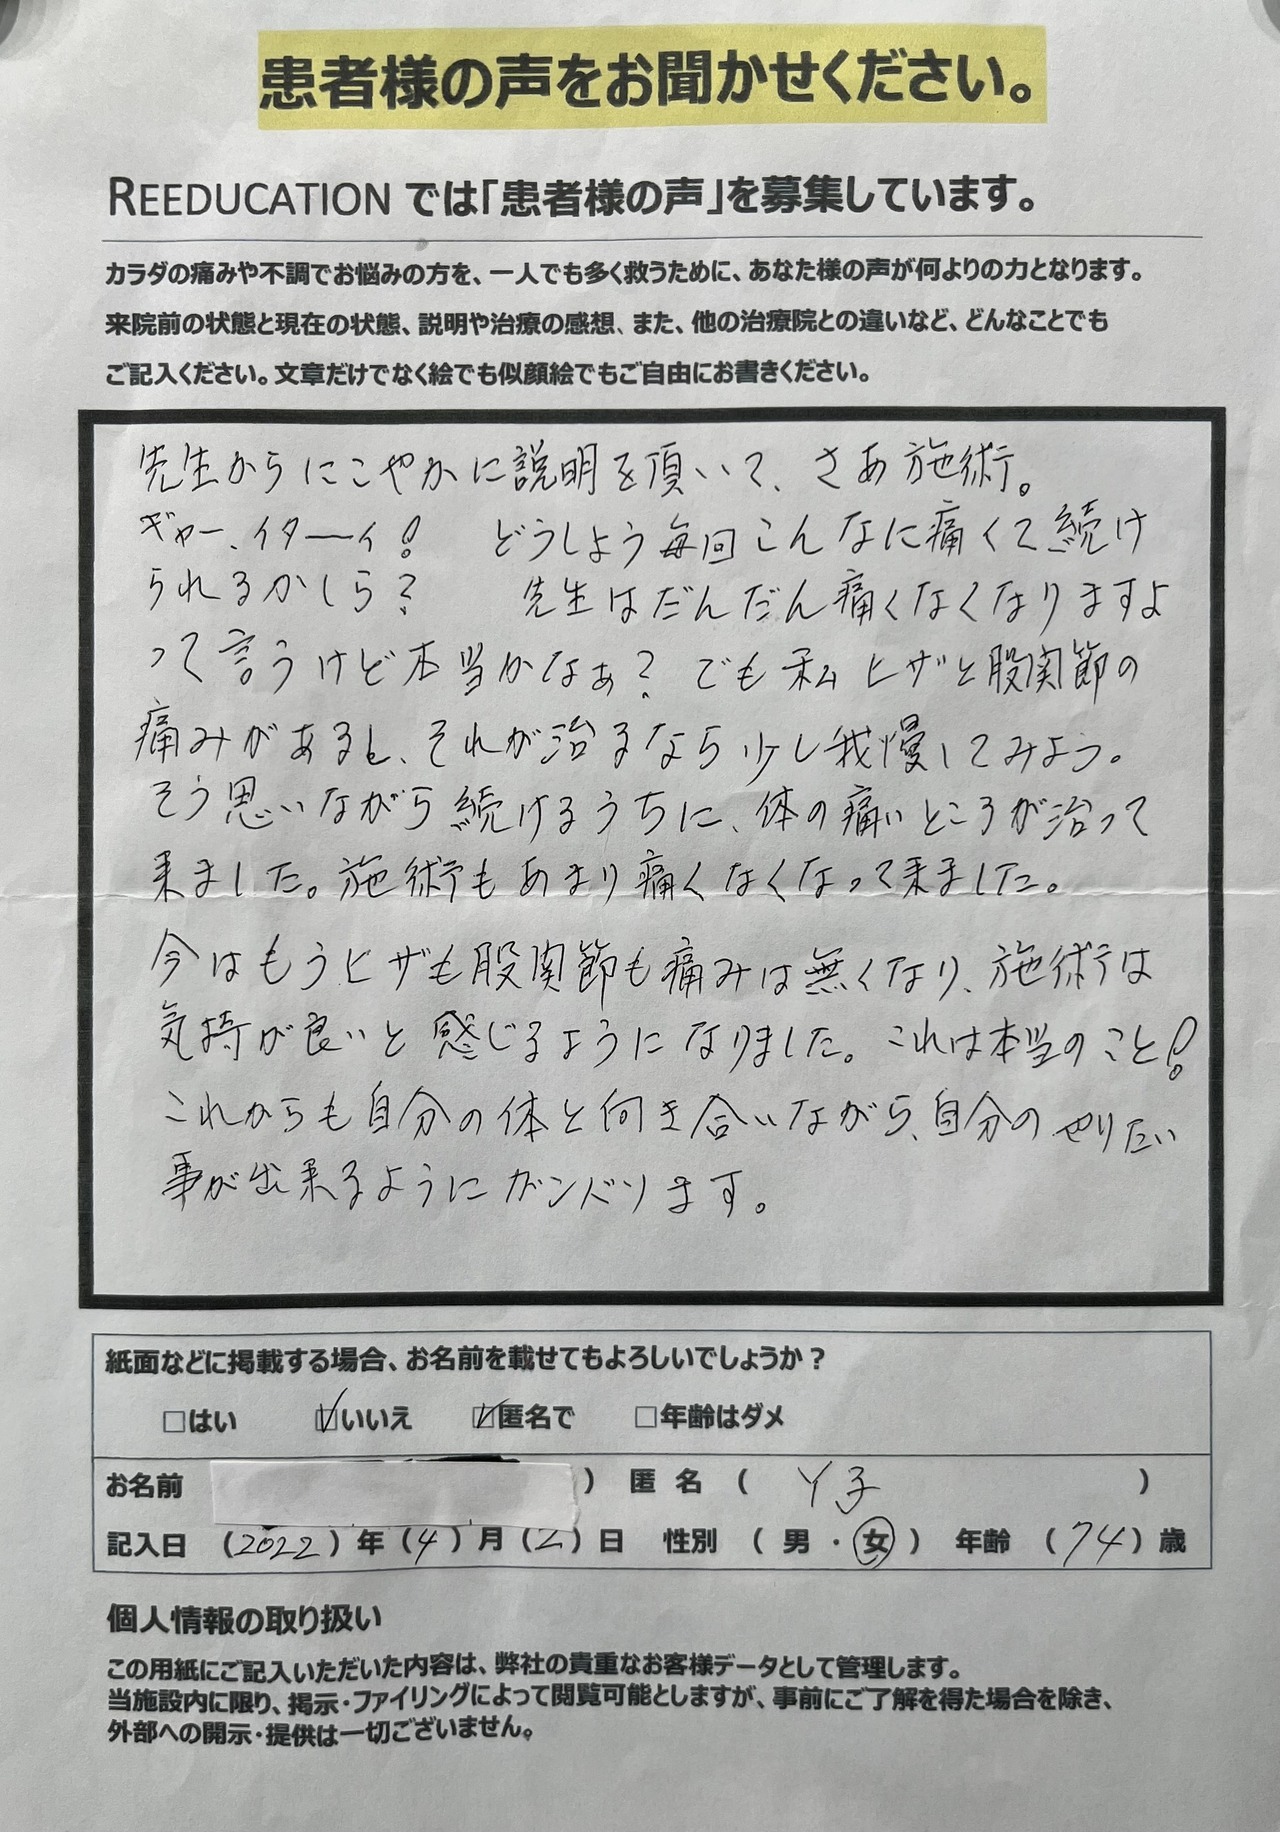 患者様の声をお聞かせください。
REEDUCATION では「患者様の声」を募集しています。
カラダの痛みや不調でお悩みの方を、一人でも多く救うために、あなた様の声が何よりの力となります。
来院前の状態と現在の状態、説明や治療の感想、また、他の治療院との違いなど、どんなことでも
ご記入ください。文章だけでなく絵でも似顔絵でもご自由にお書きください。
先生からにこやかに説明を頂いて、さあ施術。
ギャー、イターイ! どうしよう毎回こんなに痛くて続け
られるかしら? 先生はだんだん痛くなくなりますよ
って言うけど本当かなぁ? でも私ヒザと股関節の
痛みがあるし、それが治るなら少し我慢してみよう。
そう思いながら続けるうちに、体の痛いところが治って
来ました。施術もあまり痛くなくなって来ました。
今はもうヒザも股関節も痛みは無くなり、施術は
気持が良いと感じるようになりました。これは本当のこと!
これからも自分の体と向き合いながら、自分のやりたい
事が出来るようにガンバリます。
紙面などに掲載する場合、お名前を載せてもよろしいでしょうか?
□はい ☑いいえ ☑匿名で □年齢はダメ
お名前 ) 匿 名 ( Y子 )
記入日 (2022)年(4)月(2)日 性別 ( 男 ・ 女 ) 年齢 (74)歳
個人情報の取り扱い
この用紙にご記入いただいた内容は、弊社の貴重なお客様データとして管理します。
当施設内に限り、掲示・ファイリングによって閲覧可能としますが、事前にご了解を得た場合を除き、
外部への開示・提供は一切ございません。